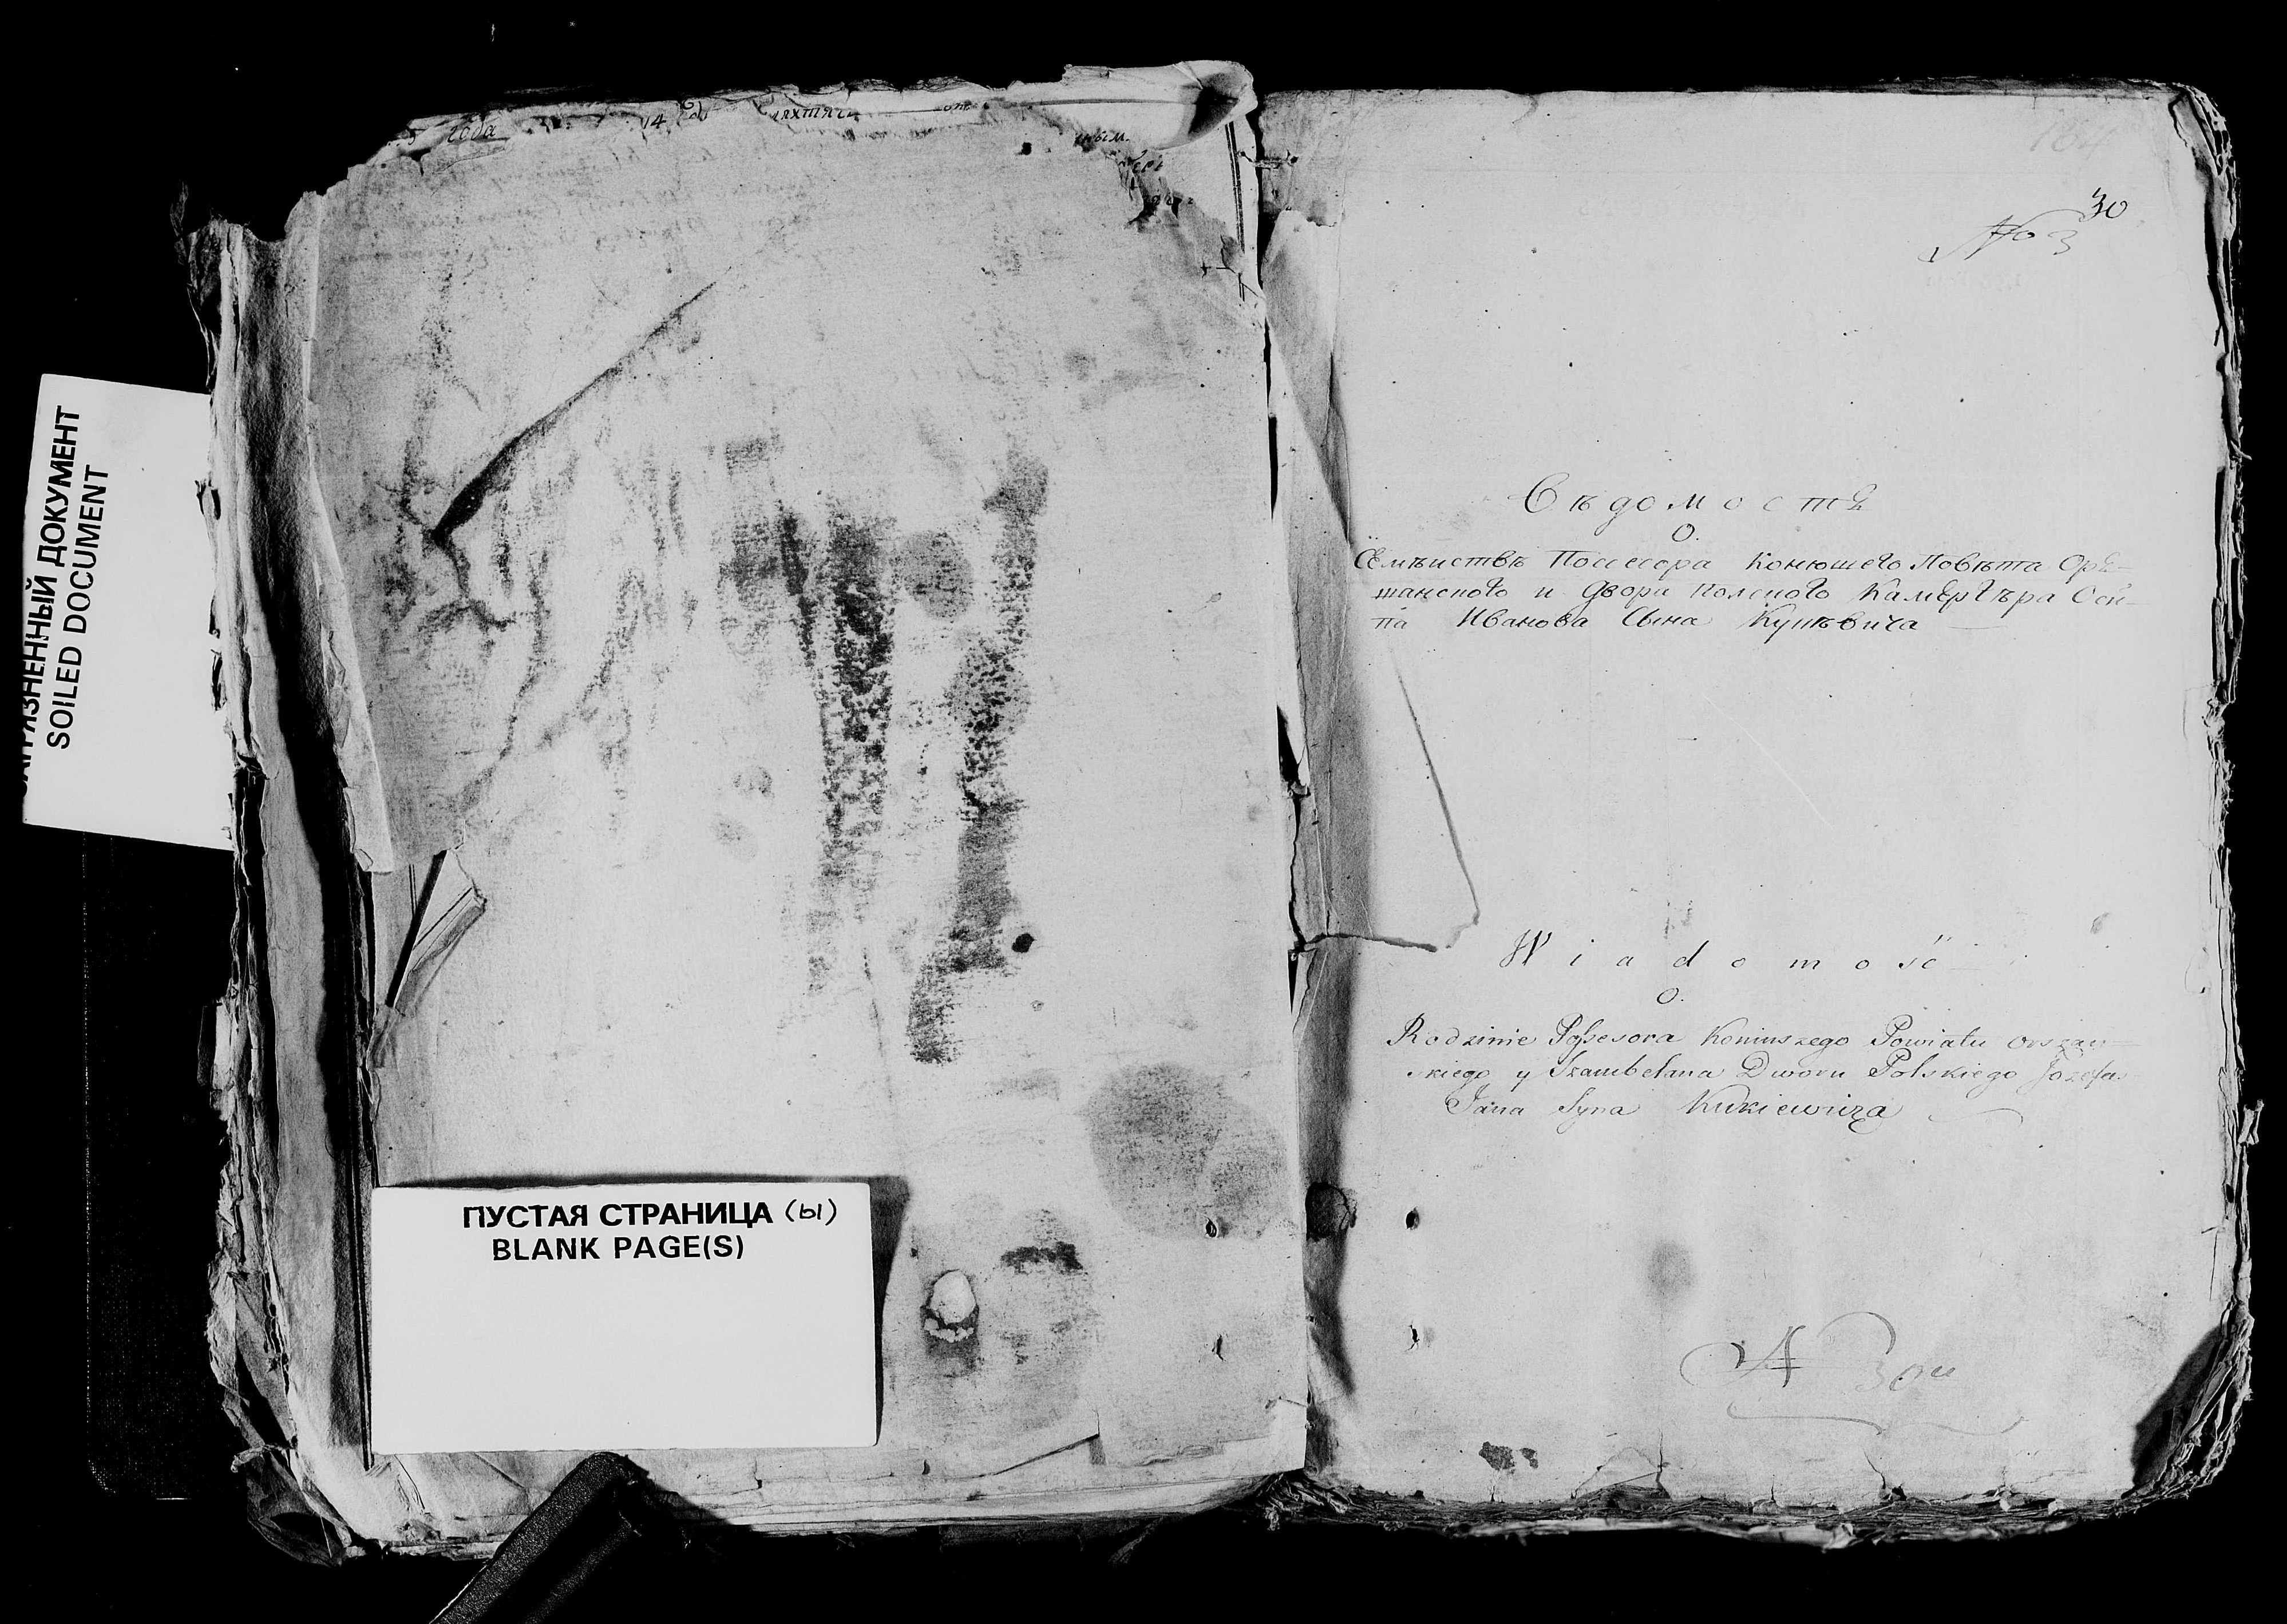 ЗАГРЯЗНЕННЫЙ ДОКУМЕНТ
SOILED DOCUMENT
года
14
ПУСТАЯ СТРАНИЦА (ы)
BLANK PAGE(S)
164
30
No 3
Вѣдомость
О.
Семѣиствѣ Посессора Конюшего Повѣта Ор-
шанского и Двора Полского Камергѣра Оси-
па Иванова Сына Кукѣвича
Wiadomość
O.
Rodzinie Possesora Koniuszego Powiatu Orszan-
skiego y Szambelana Dworu Polskiego Jozefa
Jana Syna Kukiewicza